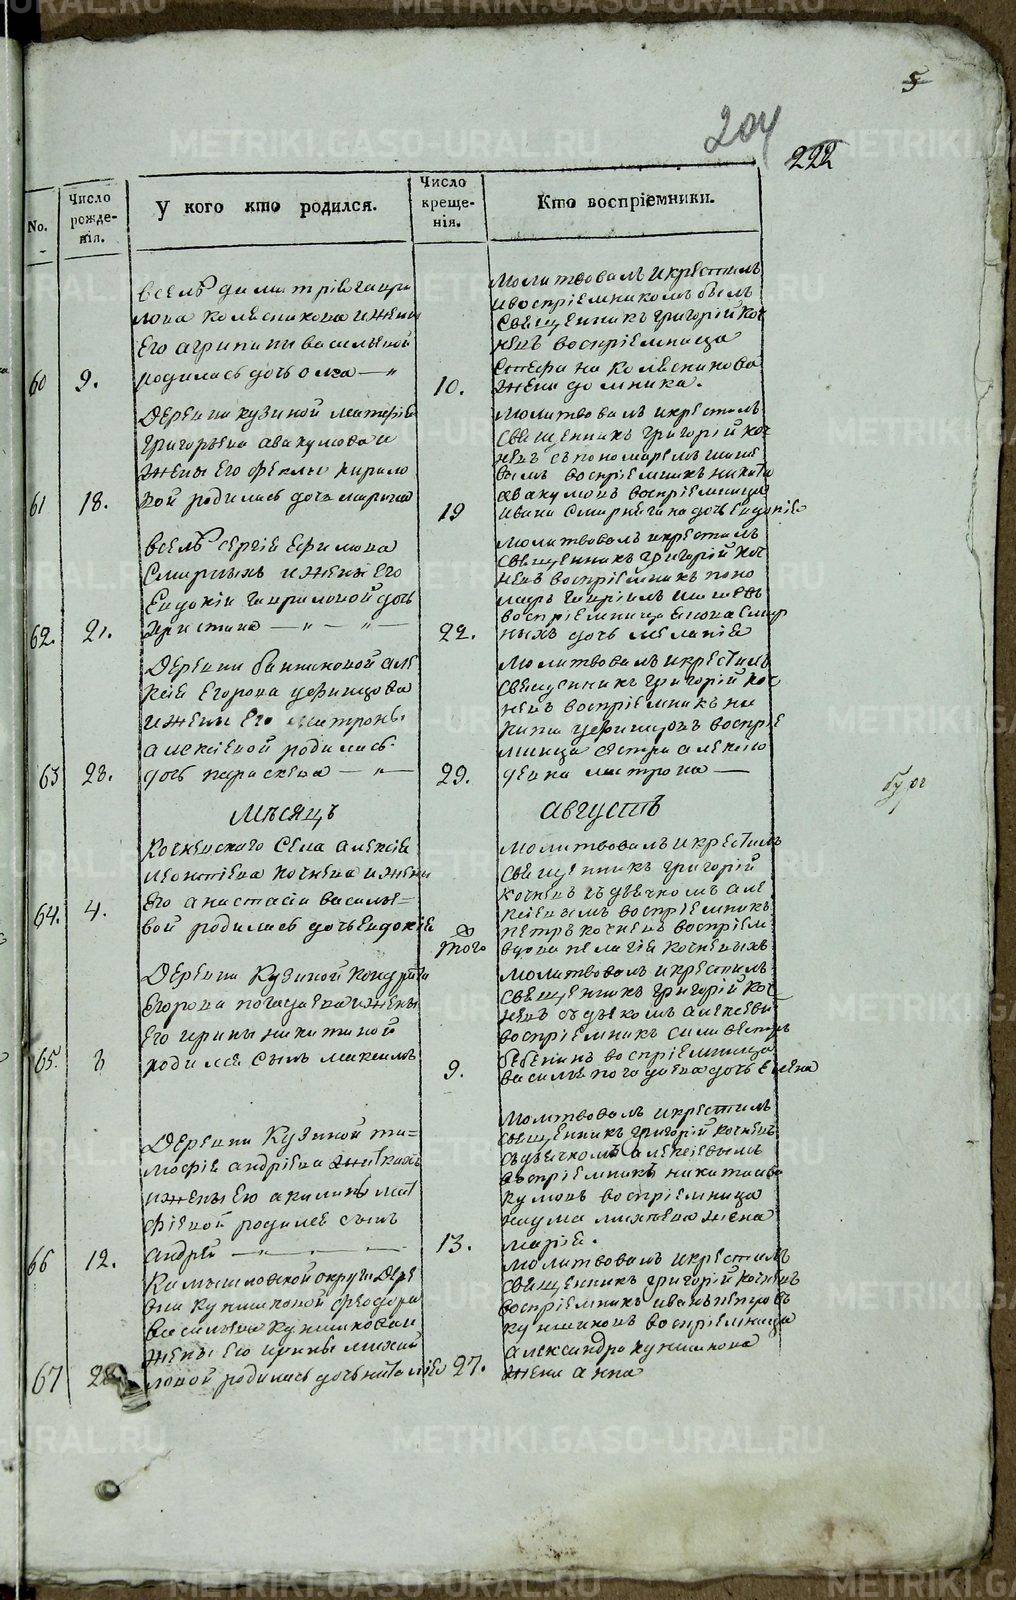 5
204
222
No.
Число рожде-нія.
У кого кто родился.
Число креще-нія.
Кто воспріемники.
вселѣ димитріе гаври
лова колесникова ижены
его агрипины васильевой
60 9. родилась дочь олга — „
10.
молитвовалъ икрестилъ
ивоспріемникомъ былъ
священникъ григорій коч
невъ воспріемница
стефана колесникова
жена домника.
деревни кузиной матфіе
григорьева авакумова и
жены его феклы кирило
61 18. вой родилась дочь марина
19
молитвовалъ икрестилъ
священникъ григорій коч
невъ съ пономаремъ
вымъ воспріемникъ никита
авакумовъ воспріемница
ивана смирнягина дочь евдокіе
вселѣ сергіе ефимова
смирныхъ ижены его
евдокіи гавриловой дочь
62. 21. христина — „ — „ —
22.
молитвовалъ икрестилъ
священникъ григорій коч
невъ воспріемникъ поно
марь гавріилъ
воспріемница смир
ныхъ дочь меланіе
деревни банниковой але
ксіе егорова
ижены его матроны
алексіевой родилась
63 28. дочь параскева — „ —
29.
молитвовалъ икрестилъ
священникъ григорій коч
невъ воспріемникъ ни
кита воспріе
мница сестра алексію
девка матрона —
Мѣсяцъ
августъ
Кочневского села алексіе
леонтіева кочнева ижены
его анастасіи василье=
64. 4. вой родилась дочь евдокіе
того
молитвовалъ икрестилъ
священникъ григорій
кочневъ съ дьячкомъ але
ксіевымъ воспріемникъ
петръ кочневъ воспріем
вдова пелагіе кочневыхъ
деревни Кузиной кондрата
Егорова погадаева ижены
его ирины никитиной
65. 8 родился сынъ максимъ
9.
молитвовалъ икрестилъ
священникъ григорій коч
невъ съ дьякомъ алексеевы
воспріемникъ силивестръ
бебенинъ воспріемница
василья погадаева дочь елена
деревни Кузиной ти=
мофіе андріева житкихъ
ижены его акилины мат
фіевой родился сынъ
66 12. андрей — „ — . —
13.
молитвовалъ икрестилъ
священникъ григорій кочневъ
съ дьячкомъ алексіевымъ
воспріемникъ никита ава
кумовъ воспріемница
наума михѣева жена
маріе.
камышловской округи дере
вни куншиковой феодора
васильева куншикова и
жены его ирины михай
67 28 ловой родилась дочь наталіе
27.
молитвовалъ икрестилъ
священникъ григорій кочневъ
воспріемникъ иванъ петровъ
куншиковъ воспріемница
александра куншикова
жена анна